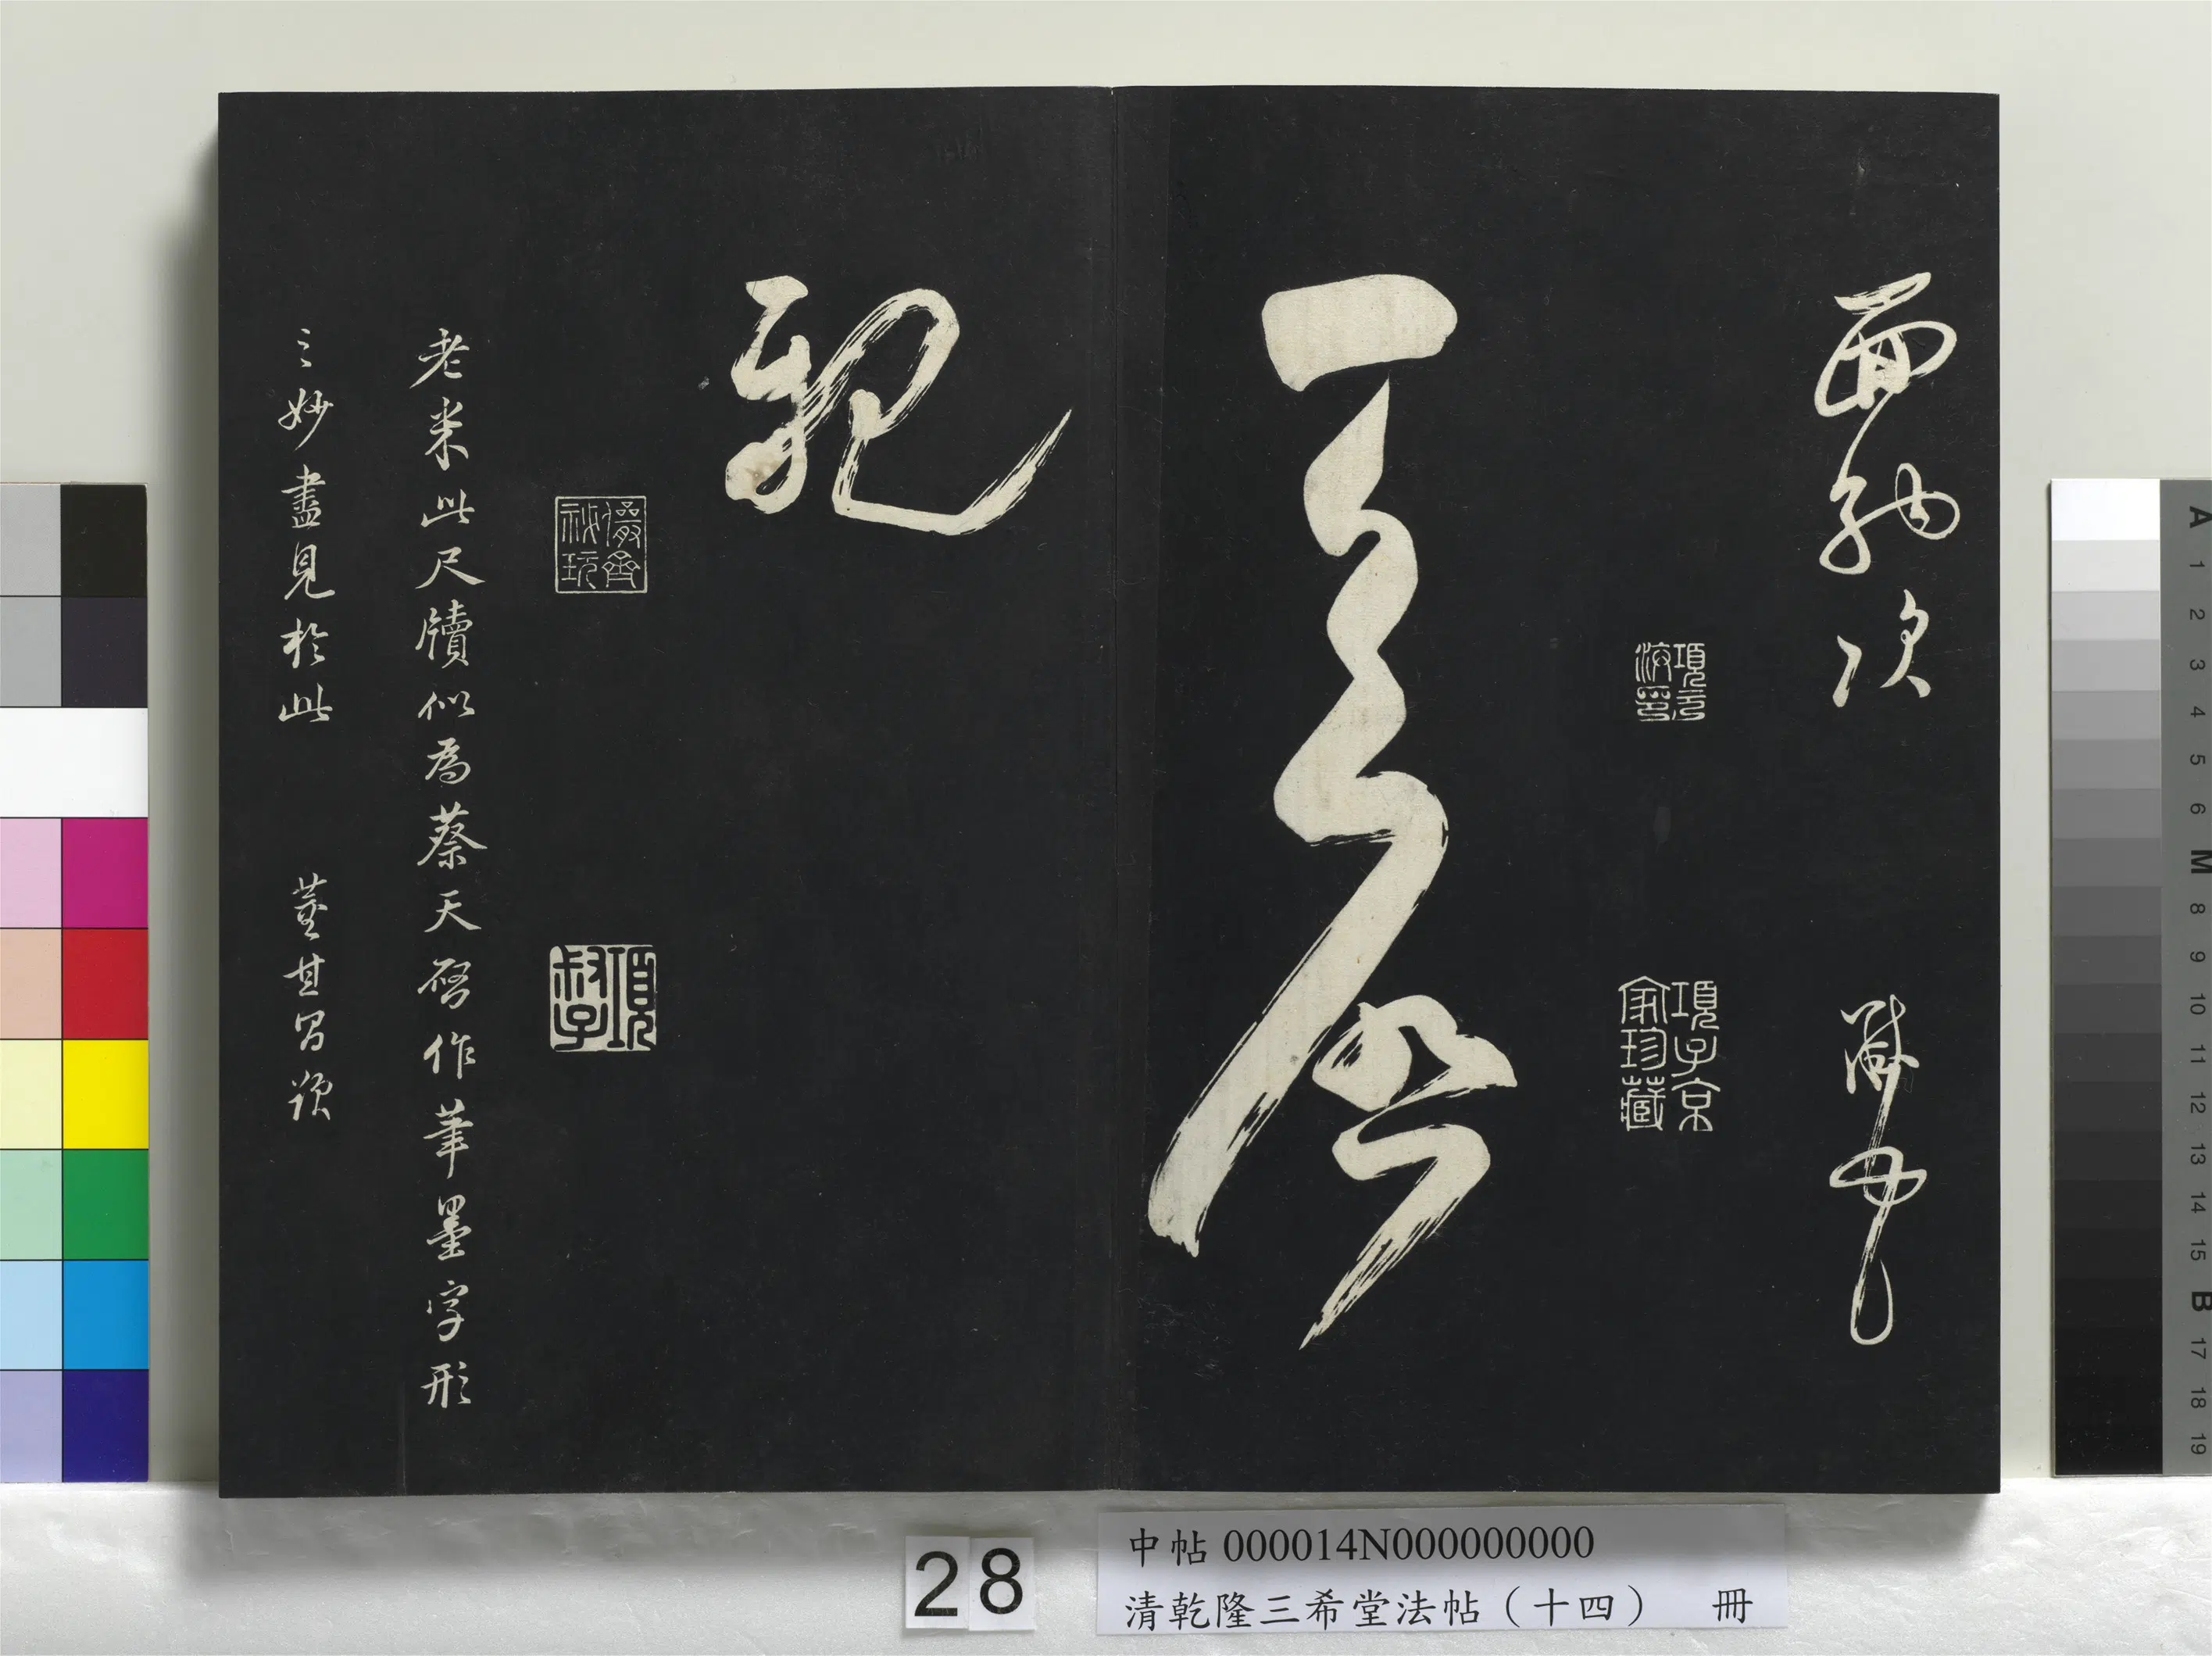 面納次 黻頓首
項元汴印
項子京家珍藏
天啓
親
儼齋秘玩
項叔子
老米此尺牘似為蔡天啓作筆墨字形
之妙盡見於此 董其昌題
28
中帖 000014N000000000
清乾隆三希堂法帖（十四） 冊
A 1 2 3 4 5 6 M 8 9 10 11 12 13 14 15 B 17 18 19